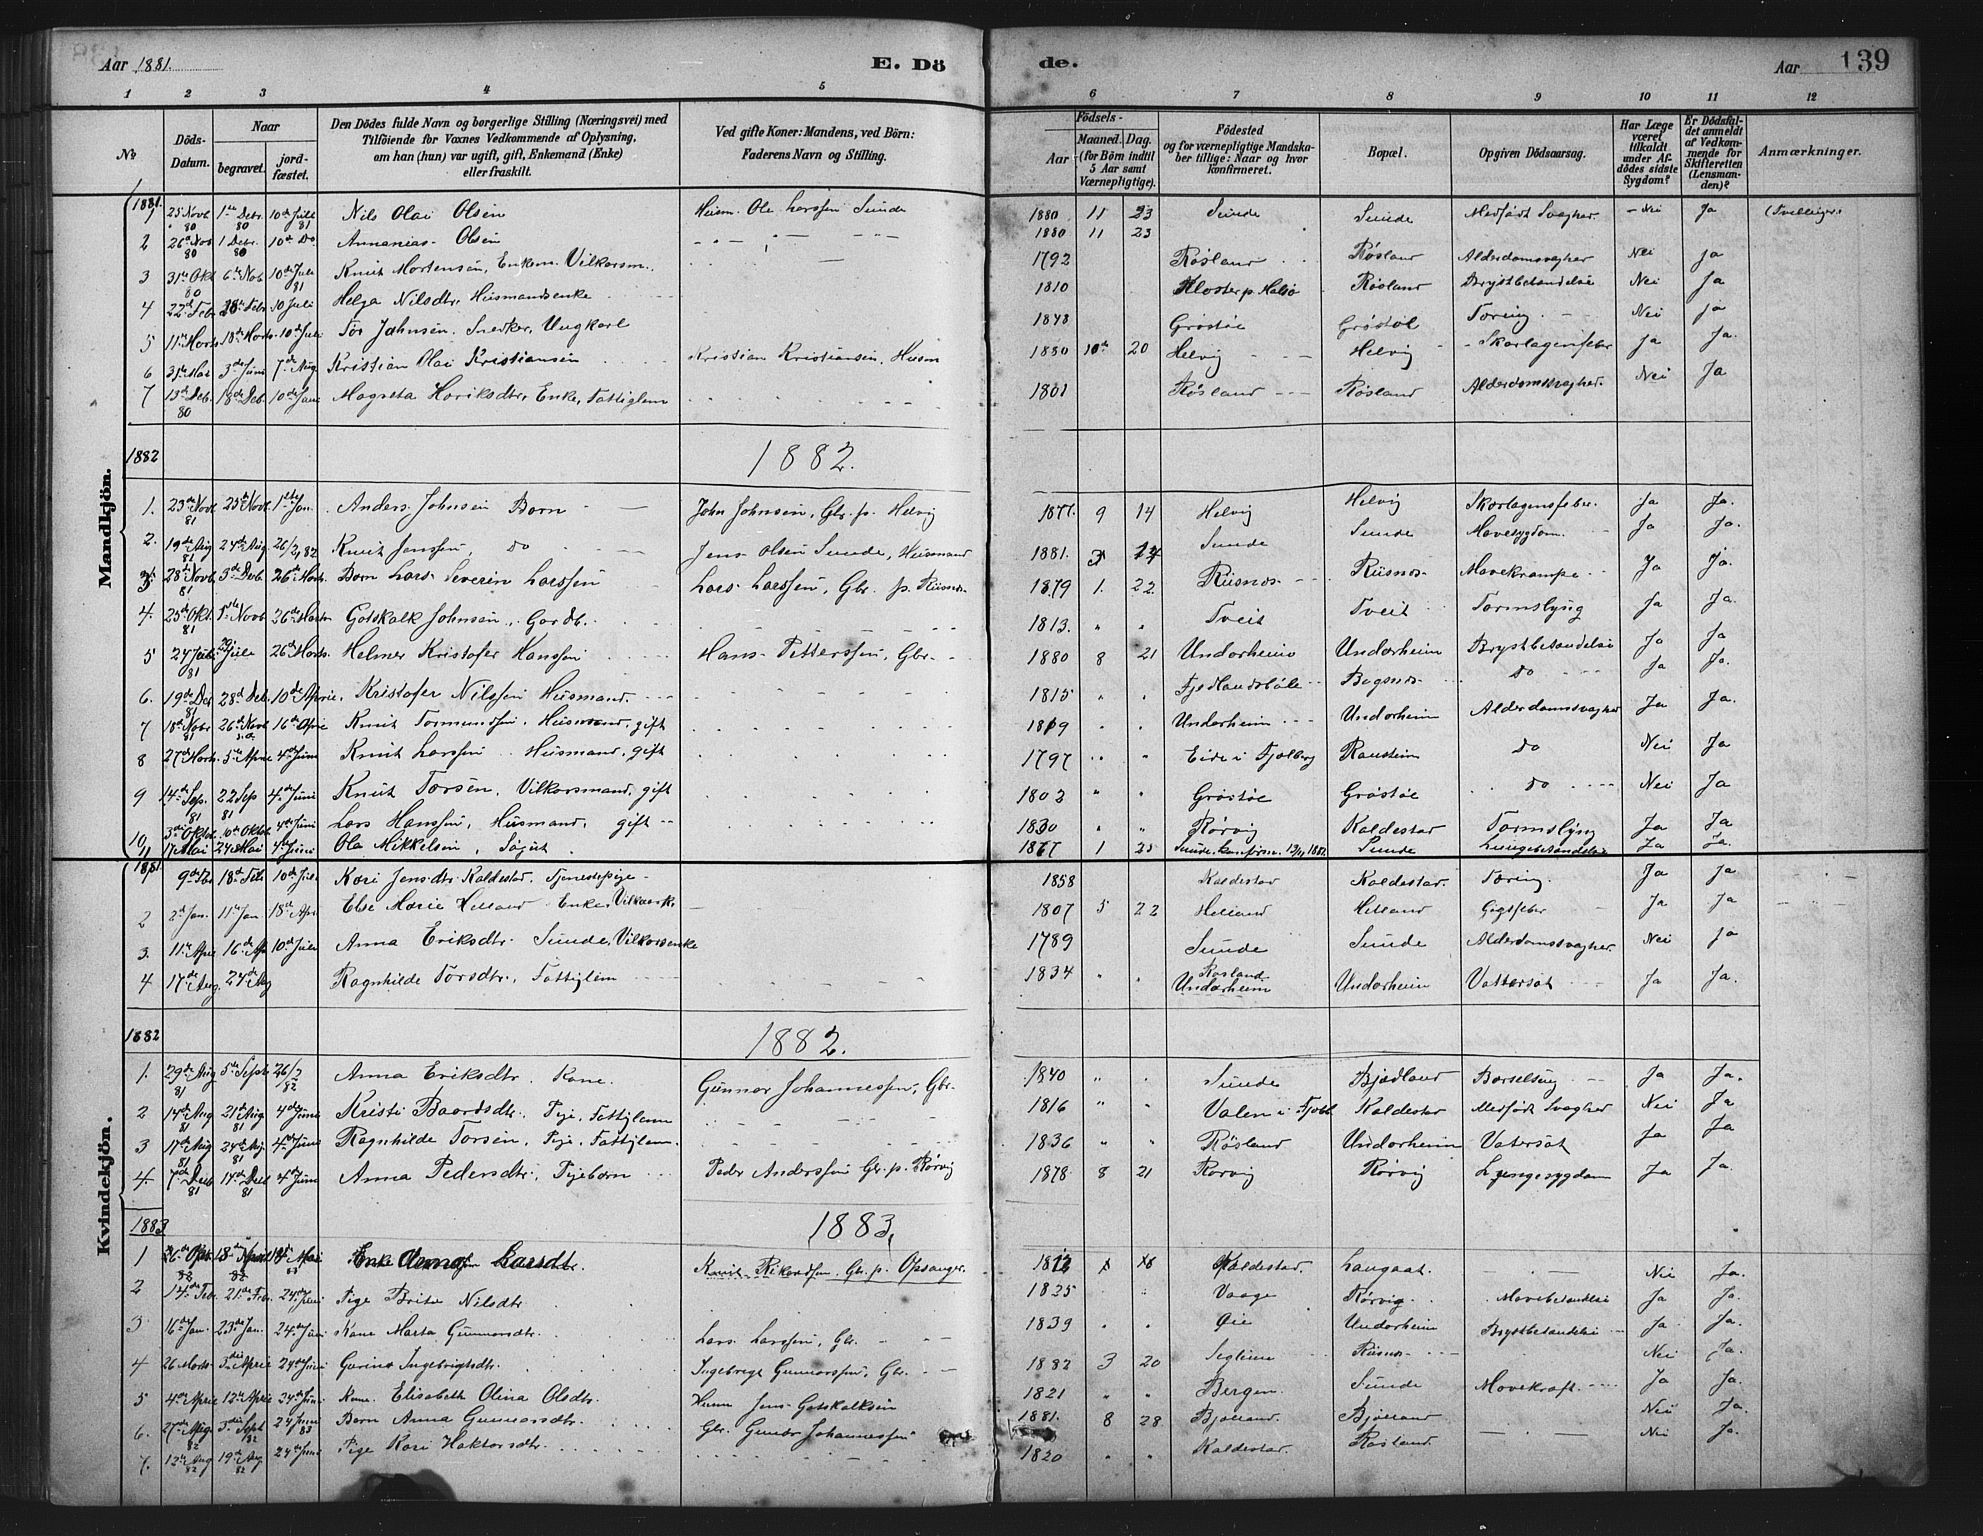 Aar 1881. E. Dö de. Aar 139
1 2 3 4 5 6 7 8 9 10 11 12
No Döds-Datum. Naar begravet. jord-fæstet. Den Dödes fulde Navn og borgerlige Stilling (Næringsvei) med Tilföiende for Voxnes Vedkommende af Oplysning, om han (hun) var ugift, gift, Enkemand (Enke) eller fraskilt. Ved gifte Koner: Mandens, ved Börn: Faderens Navn og Stilling. Födsels- Aar Maaned. Dag. (for Börn indtil 5 Aar samt Værnepligtige). Födested og for værnepligtige Mandska-ber tillige: Naar og hvor konfirmeret. Bopæl. Opgiven Dödsaarsag. Har Læge været tilkaldt under Af-dödes sidste Sygdom? Er Dödsfal-det anmeldt af Vedkom-mende for Skifteretten (Lensman-den)? Anmærkninger.
Mandkjön.
1881.
1 25 Novb 80 1ste Debr. 80 10de Juli 81 Nils Olai Olsen Husm. Ole Larssen Sunde 1880 11 23 Sunde Sunde Medfödt Svaghed Nei Ja (Tvillinger.
2 26 Nov 80 1 Debr. 80 10de Do Annanias Olsen 1880 11 23
3 31te Okt 80 6te Nob 10de Juli 81 Knut Mortensen, Enkem. Vilkorsm. 1792 Røsland Røsland Alderdomssvaghed Nei Ja
4 22de Febr. Febr 10 Juli Helga Nilsdtr. Husmandsenke 1810 Kloster p. Halsö Røsland Brystbetændelse Nei Ja
5 11te Marts 18de Marts 10de Juli Tor Johnsen. Snedker, Ungkarl 1848 Gröstöl Gröstöl Tæring Nei Ja
6 31te Mai 3de Juni 7de Aug. Kristian Olai Kristiansen Kristian Kristiansen, Husm 1880 10de 20 Helvig Helvig Skarlagensfeber Ja Ja.
7 13de Deb. 80 18de Deb. 10de Juni Magreta Henriksdtr, Enke, Fattiglem 1801 Røsland Røsland Alderdomssvaghed. Nei Ja
1882 1882.
1. 23de Novb 81 25 Novb. 1ste Jan. Anders Johnsen Barn John Johnsen, Gbr. p. Helvig 1877. 9 14 Helvig Helvig Skarlagensfeber Ja Ja.
2. 19de Aug 81 24de Aug. 26/3 82 Knut Jenssen, Do Jens Olsen Sunde, Husmand 1881. 3 Sunde Sunde Mavesygdom Ja Ja.
3. 28de Novb 81 3de Debr. 26de Marts. Barn Lars Severin Larssen Lars Larssen, Gbr. p. Riisnes 1879 1. 22 Riisnes Riisnes Mavekrampe Ja Ja.
4. 25de Okt. 81 1ste Novb 26de Marts Gotskalk Johnsen, Gardb. 1813. " " Tveit Tveit Tarmslyng Ja Ja.
5 24 Juli 81 Jule 26de Marts. Helmer Kristofer Hanssen Hans Pettersen, Gbr. 1880 8 21 Undarheim Undarheim Brystbetændelse Ja Ja
6. 19de Des 81 28de Deb. 10de Aprie. Kristofer Nilssen Husmand. 1815 " " Fjellandsböle Bogsnes Do Ja Ja.
7 18de Nobr 81 26de Novb 16de Aprie Knut Tormundsen. Husmand, gift 1819 " " Undarheim Undarheim Alderdomssvaghed Ja Ja.
8 27de Marts. 5te Aprie 4de Juni Knut Larssen Husmand, gift 1797 " " Eide i Fjelberg Rausheim Do Nei Ja
9 14de Sep. 81 22 Sep 81 4de Juni Knut Torsen, Vilkorsmand, gift 1802 " " Gröstöl Gröstöl Do Nei Ja
10 3de Oktob. 10de Oktob. 4de Juni Lars Hanssen, Husmand, gift 1830 " " Rörvig Kaldestad Tarmslyng Ja Ja
11 17 Mai 24de Mai 4de Juni Ola Mikkelsen, Sögut. 1867 1 25 Sunde. Sunde Lungebetændelse Ja Ja.
Kvindekjön.
1881.
9de Feb 18de Feb 10de Juli Kari Jensdtr. Kaldestad, Tjenestepige 1858 Kaldestad Kaldestad. Tæring. Ja Ja
2 2de Jan. 11te Jan 18de Apri Else Marie Helland Enke, Vilkorske 1807 5 22 Helland Helland Gigtfeber Ja Ja
3. 11te Aprie 16de Ap 10de Juli Anna Eriksdtr. Sunde, Vilkorsenke 1789 Sunde Sunde Alderdomssvaghed. Nei Ja
4 17de Aug. 24de Aug Ragnhilde Torsdtr., Fattiglem 1834 " " Røsland Undarheim Undarheim Vattersot Ja Ja.
1882 1882.
1. 29de Aug 81 5te Septr 26/3 82 Anna Eriksdtr. Kone. Gunnar Johannessen, Gbr. 1840 " " Sunde Bjødland Barselseng Ja Ja.
2 14de Aug 81 21de Aug 81 4de Juni Kristi Baardsdtr. Pige, Fattiglem 1816 " " Valen i Fjelb. Kaldestad Medfödt Svaghed Nei Ja
3 17de Aug 81 24de Aug. 81 4de Juni Ragnhilde Torsen, Pige, Fattiglem. 1836 " " Røsland Undarheim Vatersot Ja Ja
4 7de Deb 81 14de Deb 81 4de Juni Anna Pedersdtr. Pigebarn Peder Anderssen Gbr. p. Rörvig 1878 8 21 Rørvig Rørvig Lungesygdom Ja Ja.
1883 1883.
1 26de 82 18de 82 83 Enke Anna Larsdtr. Knut Rikardsen. Gbr. p. Opsanger. 1812 Kaldestad. Langaat. Nei Ja.
2 14de Febr. 21de Febr. 24de Juni Pige Brita Nilsdtr 1825 Vaage Rørvig Mavebetændelse Ja Ja.
3 16de Jan. 23de Jan. 24de Juni Kone Marta Gunnarsdtr. Lars Larssen, Gbr. 1839 " " Øie Undarheim Brystbetændelse Ja Ja.
4 26 Marts. Aprie 24de Juni Gurina Ingebrigtsdtr. Ingebregt Gunnarssen, Gbr. 1882 3 20 Seglem Riisnes Nei Ja.
5 4de Aprie 12te Aprie 24de Juni Kone. Elisabeth Olina Olsdtr. Husm Jens Gotskalksen 1821 " " Bergen Sunde Mavekræft. Ja Ja.
6. 27de Aug. 82 3die Sept 82 24 Juni 83 Barn Anna Gunnarsdtr. Gbr. Gunnar Johannessen 1881. 8 28 Bjölland. Bjölland Nei Ja.
7. 12te Aug 82 19de Aug 82 24de Juni Pige Kari Haktorsdtr. 1820 " " Kaldestad. Røsland Nei Ja.